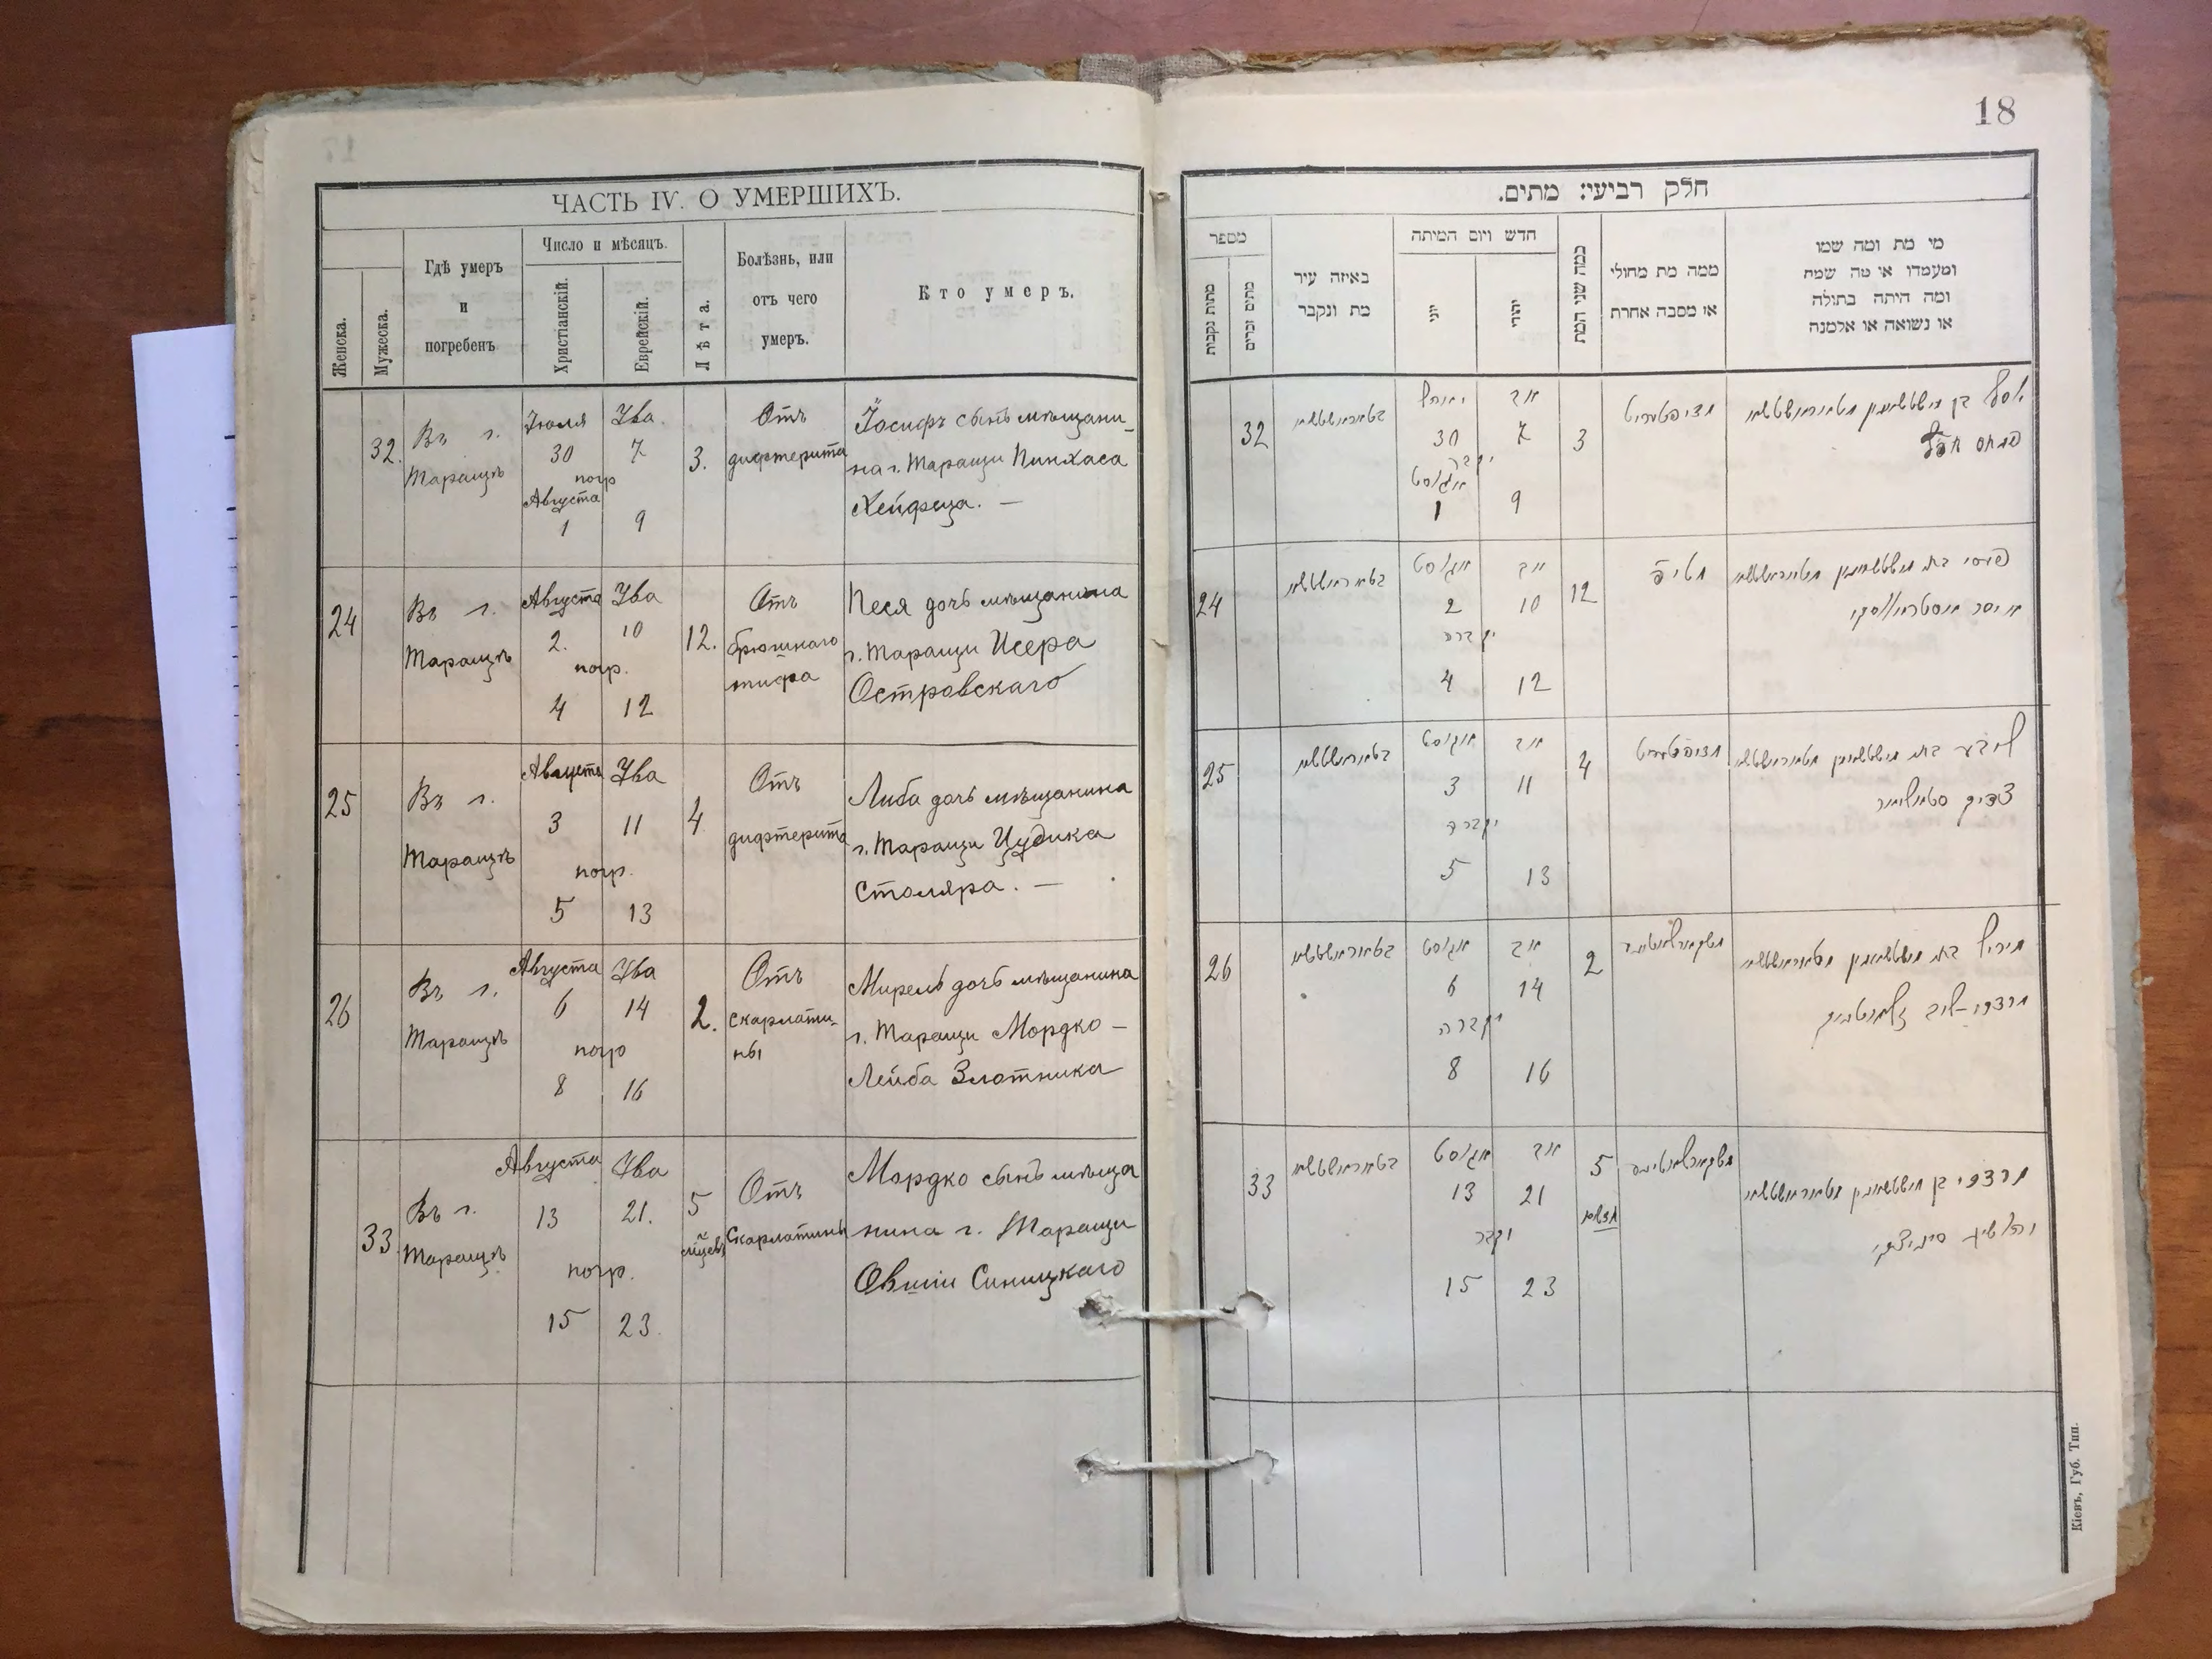 ЧАСТЬ IV. О УМЕРШИХЪ.
Женска.
Мужеска.
Гдѣ умеръ
и
погребенъ
Число и мѣсяцъ.
Христіанскій.
Еврейскій.
Лѣта.
Болѣзнь, или
отъ чего
умеръ.
Кто умеръ.
32.
Въ г.
Таращѣ
Іюля
30
погр
Августа
1
Ува.
7
9
3.
Отъ
дифтерита
Іосифъ сынъ мѣщани-
на г. Таращи Пинхаса
Хейфеца. —
24
Въ г.
Таращѣ
Августа
2.
погр.
4
Ува
10
12
12.
Отъ
брюшнаго
тифа
Песя дочь мѣщанина
г. Таращи Исера
Островскаго
25
Въ г.
Таращѣ
Августа
3
погр.
5
Ува
11
13
4
Отъ
дифтерита
Либа дочь мѣщанина
г. Таращи Цудика
Столяра. —
26
Въ г.
Таращѣ
Августа
6
погр
8
Ува
14
16
2.
Отъ
скарлати-
ны
Мирель дочь мѣщанина
г. Таращи Мордко-
Лейба Злотника
33
Въ г.
Таращѣ
Августа
13
погр.
15
Ува
21.
23.
5
Отъ
Скарлатины
Мордко сынъ мѣща
нина г. Таращи
Овшіи Синицкаго
18
חלק רביעי: מתים.
מספר
מתות נקבות
מתים זכרים
באיזה עיר
מת ונקבר
חדש ויום המיתה
יוני
יהודי
כמה שני המת
ממה מת מחולי
או מסבה אחרת
מי מת ומה שמו
ומעמדו או מה שמה
ומה היתה בתולה
או נשואה או אלמנה
32
30
אוגוסט
1
אב
7
9
3
יוסף בן
פנחס חפץ
24
אוגוסט
2
נקברה
4
אב
10
12
12
פעסי בת
איסר אסטראווסקי
25
אוגוסט
3
נקברה
5
אב
11
13
4
ליבע בת
צדיק סטאליאר
26
אוגוסט
6
נקברה
8
אב
14
16
2
מיריל בת
מרדכי-ליב זלאטניק
33
אוגוסט
13
נקבר
15
אב
21
23
5
חדשים
מרדכי בן
יהושיע סיניצקי
Кіевъ, Губ. Тип.